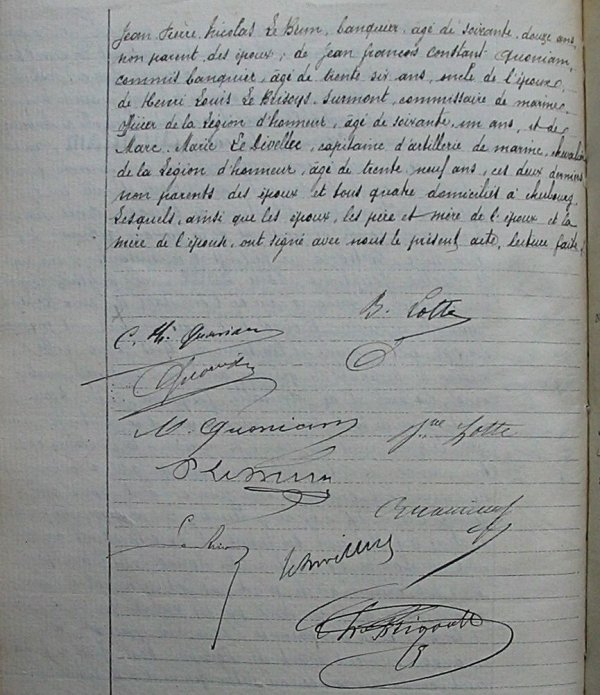 Jean Pierre Nicolas Le Brun, banquier, âgé de soixante douze ans,
non parent des époux; de Jean françois constant Quoniam,
commis banquier, âgé de trente six ans, oncle de l'épouse,
de Henri Louis Le Brisoys Surmont, commissaire de marine,
officier de la Légion d'honneur, âgé de soixante un ans, et de
Marc Marie Le Divellec, capitaine d'artillerie de marine, chevalier
de la Légion d'honneur, âgé de trente neuf ans, ces deux derniers
non parents des époux et tous quatre domiciliés à cherbourg
Lesquels, ainsi que les époux, les père et mère de l'époux et la
mère de l'épouse, ont signé avec nous le présent acte, lecture faite.
B. Cotte
C. Th. Quoniam
Quoniam
M. Quoniam
Cotte